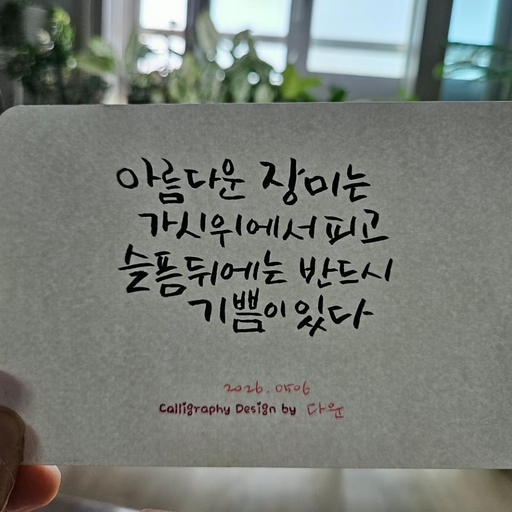 아름다운 장미는
가시위에서 피고
슬픔뒤에는 반드시
기쁨이 있다
2026.0506
Calligraphy Design by 다운